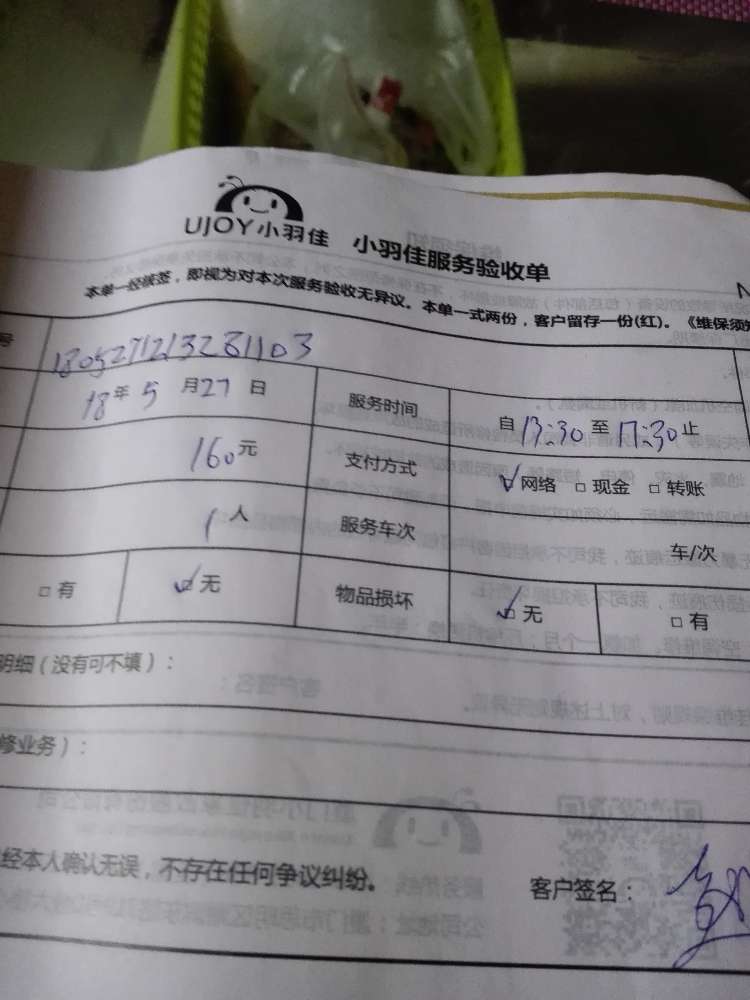 UJOY小羽佳 小羽佳服务验收单
本单一经核签，即视为对本次服务验收无异议。本单一式两份，客户留存一份(红)。《维保须知
号 180527121328 1103
18年 5 月 27 日 服务时间 自 13:30 至 17:30 止
160 元 支付方式 网络 现金 转账
1 人 服务车次 车/次
有 无 物品损坏 无 有
明细（没有可不填）：
修业务）：
经本人确认无误，不存在任何争议纠纷。 客户签名：